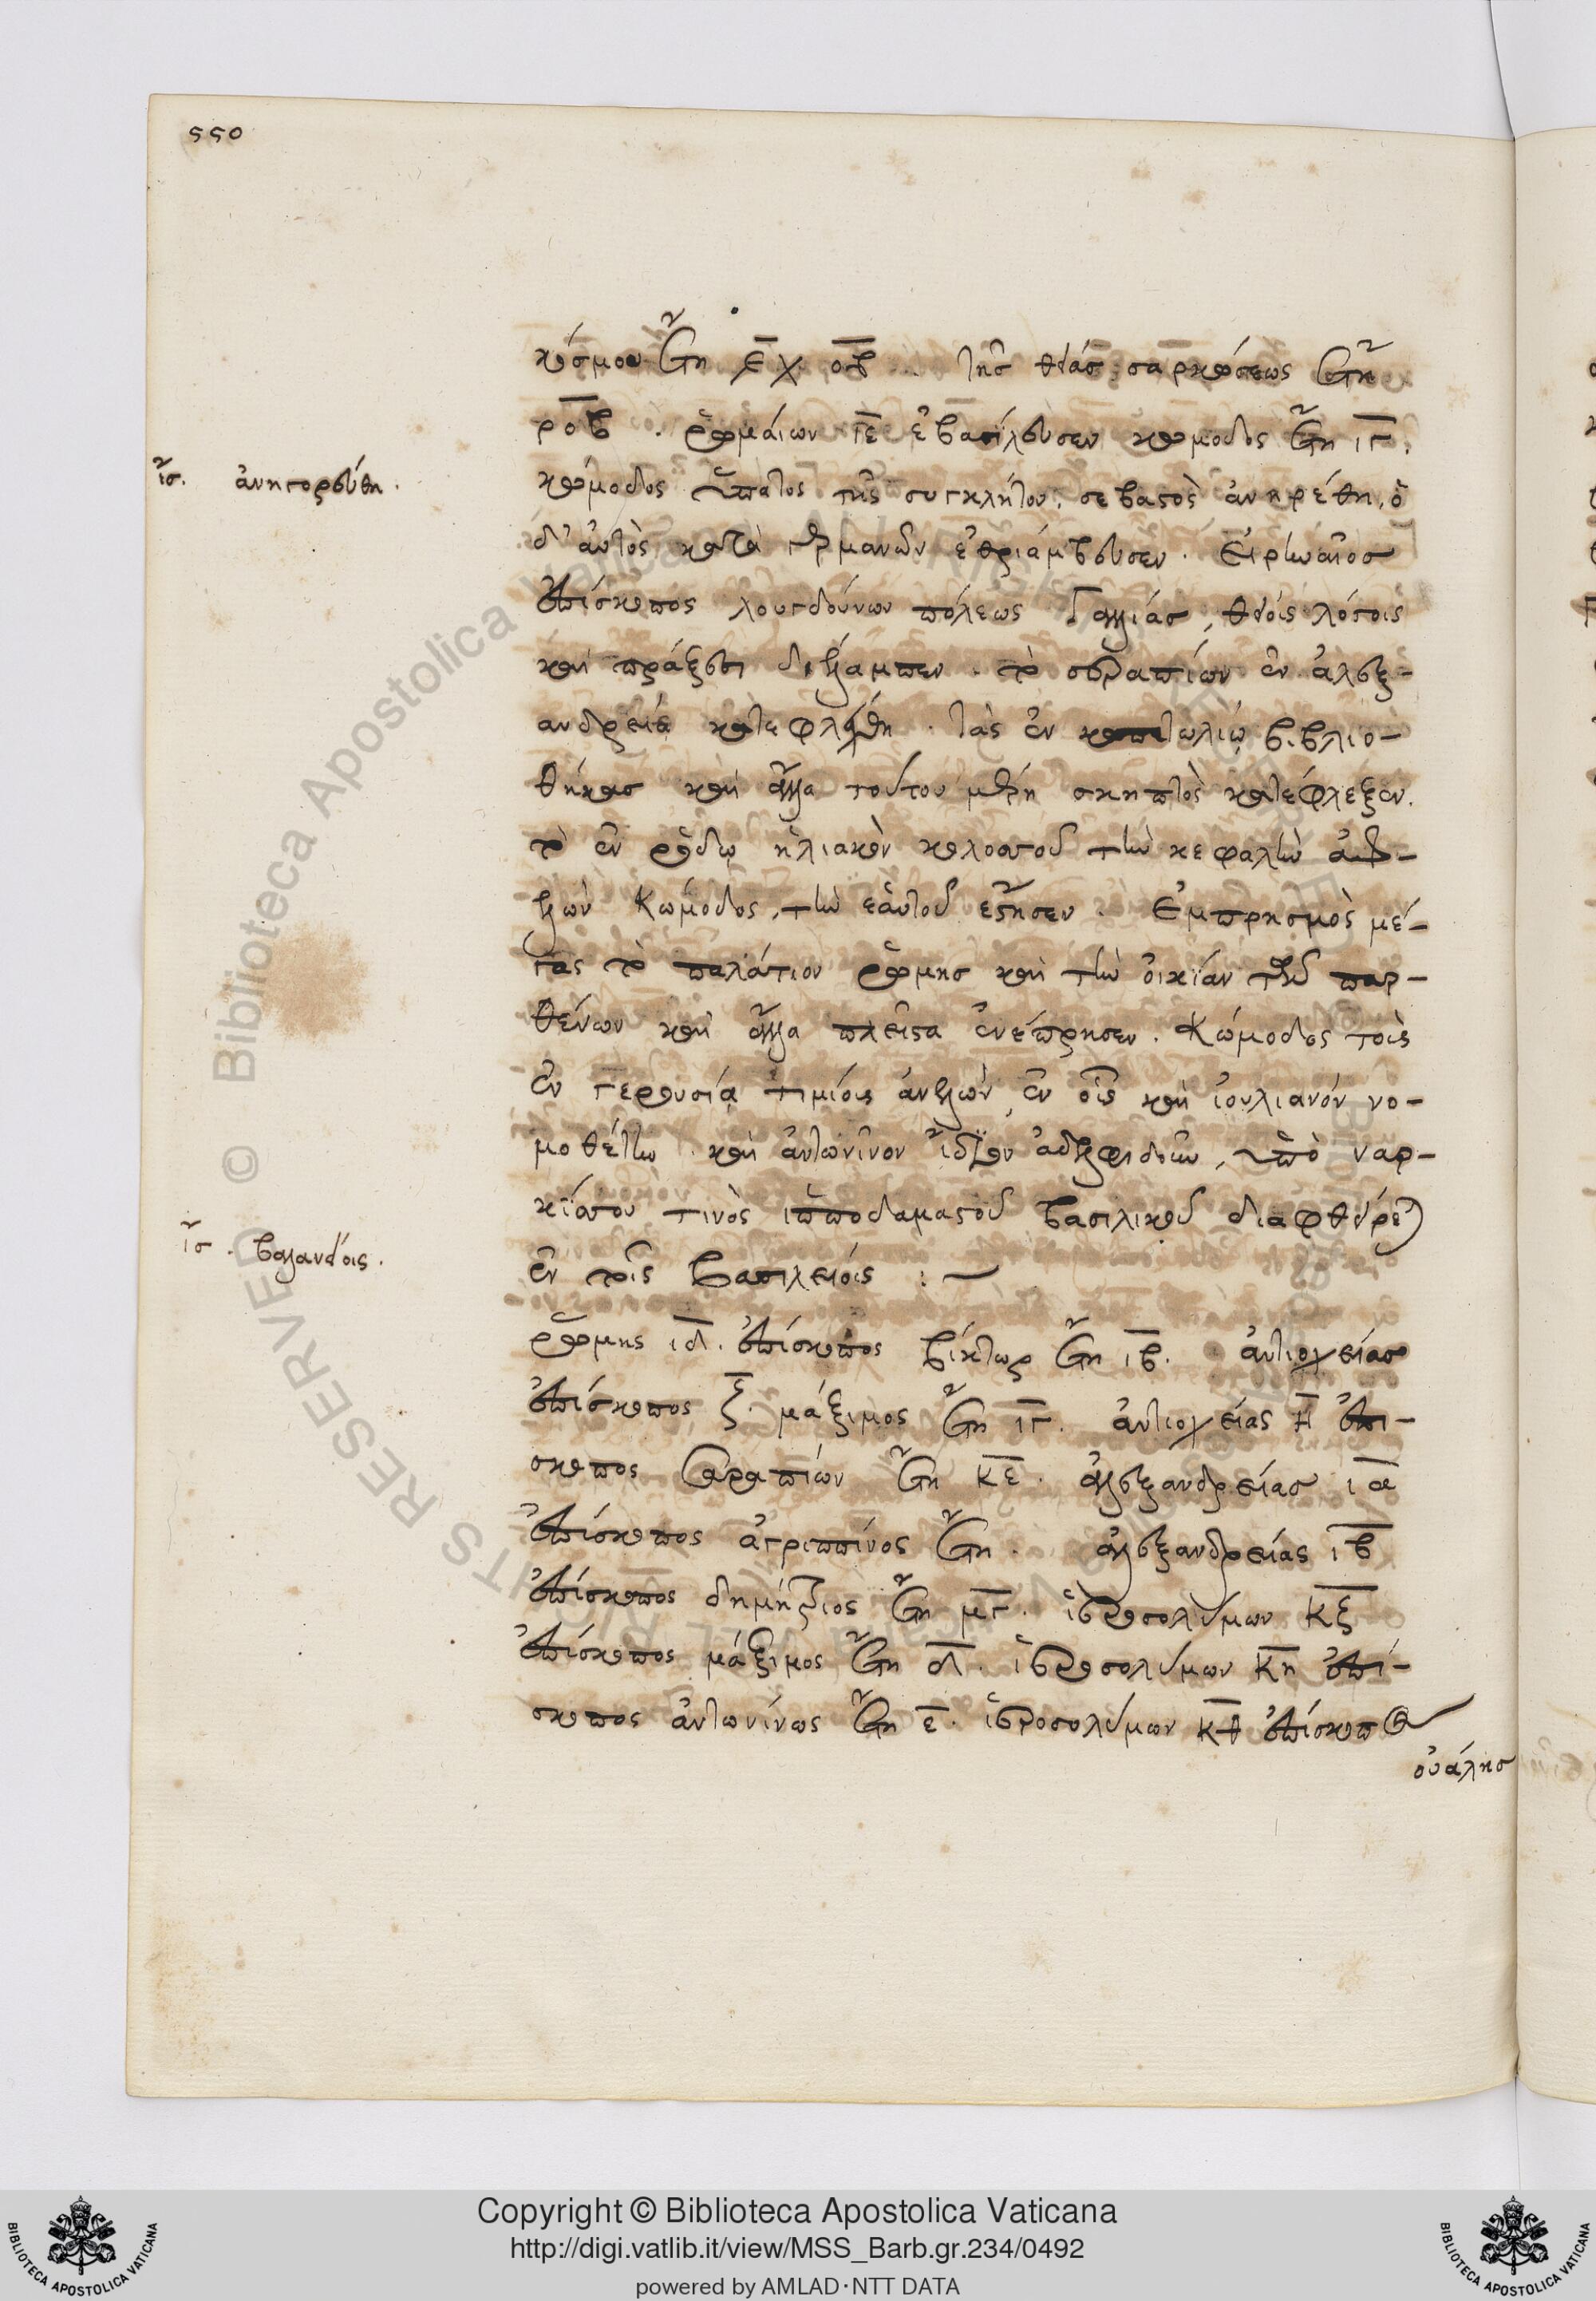 550
κόσμου ἔτη ͵εχοβ. τῆς θείας σαρκώσεως ἔτη
ροβ. ῥωμαίων ιε ἐβασίλευσεν κομοδος ἔτη ιγ.
κόμοδος ὕπατος τῆς συγκλήτου, σεβαστὸς ἀνηρέθη, ὁ
ἴσ. ἀνηγορεύθη.
δ' αὐτὸς κατὰ γερμανῶν ἐθριάμβευσεν. Εἰρηναῖος
ἐπίσκοπος λουγδούνων πόλεως Γαλλίας, θείοις λόγοις
καὶ πράξεσι διέλαμπεν. τὸ σεραπίων ἐν ἀλεξ-
ανδρείᾳ κατεφλέχθη. τὰς ἐν καπιτωλίῳ βιβλιο-
θήκας καὶ ἄλλα τούτου μέρη σκηπτὸς κατέφλεξεν.
τὸ ἐν ῥόδῳ ἡλιακὸν κολοσσοῦ τὴν κεφαλὴν ἀφε-
λὼν Κώμοδος, τὴν ἑαυτοῦ ἔστησεν. Ἐμπρησμὸς μέ-
γας τὸ παλάτιον ῥώμης καὶ τὴν οἰκίαν τῶν παρ-
θένων καὶ ἄλλα πλεῖστα ἐνέπρησεν. Κώμοδος τοὺς
ἐν γερουσίᾳ τιμίοις ἀνελὼν, ἐν οἷς καὶ ἰουλιανόν νο-
μοθέτην καὶ ἀντωνῖνον ἴδιον ἀδελφιδοῦν, ὑπὸ ναρ-
κίσσου τινὸς ἱπποδαμαστοῦ βασιλικοῦ διαφθείρεται
ἴσ. βαλανείοις.
ἐν τοῖς βασιλείοις :~
ῥώμης ιδ. ἐπίσκοπος βίκτωρ ἔτη ιβ. ἀντιοχείας
ἐπίσκοπος ζ. μάξιμος ἔτη ιγ. ἀντιοχείας η ἐπι-
σκοπος σαραπίων ἔτη κε. ἀλεξανδρείας ια
ἐπίσκοπος ἀγριππίνος ἔτη. ἀλεξανδρείας ιβ
ἐπίσκοπος δημήτριος ἔτη μγ. ἱεροσολύμων κζ
ἐπίσκοπος μάξιμος ἔτη δ. ἱεροσολύμων κη ἐπί-
σκοπος ἀντωνίνος ἔτη ε. ἱεροσολύμων κθ ἐπίσκοπος
οὐάλης
Copyright © Biblioteca Apostolica Vaticana
http://digi.vatlib.it/view/MSS_Barb.gr.234/0492
powered by AMLAD·NTT DATA
BIBLIOTECA APOSTOLICA VATICANA
BIBLIOTECA APOSTOLICA VATICANA